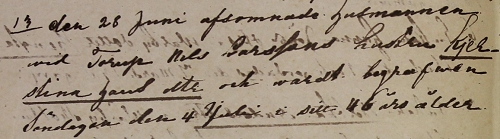 13 den 28 Juni afsomnade husmannen
vid Torup Nils Larssons hustru Kjer-
stina dtr och wardt begrafwen
Söndagen den 4 Juli i sitt 46 års ålder.